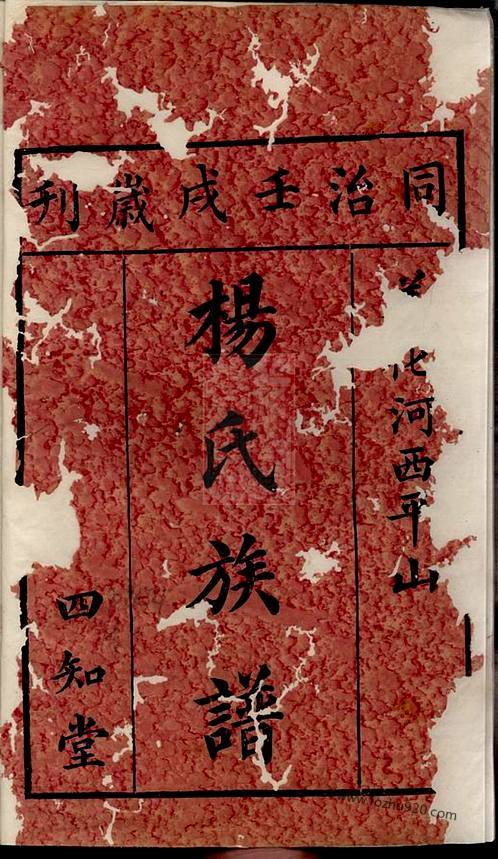 同治壬戌歲刊
化河西平山
楊氏族譜
四知堂
www.jiazhu920.com